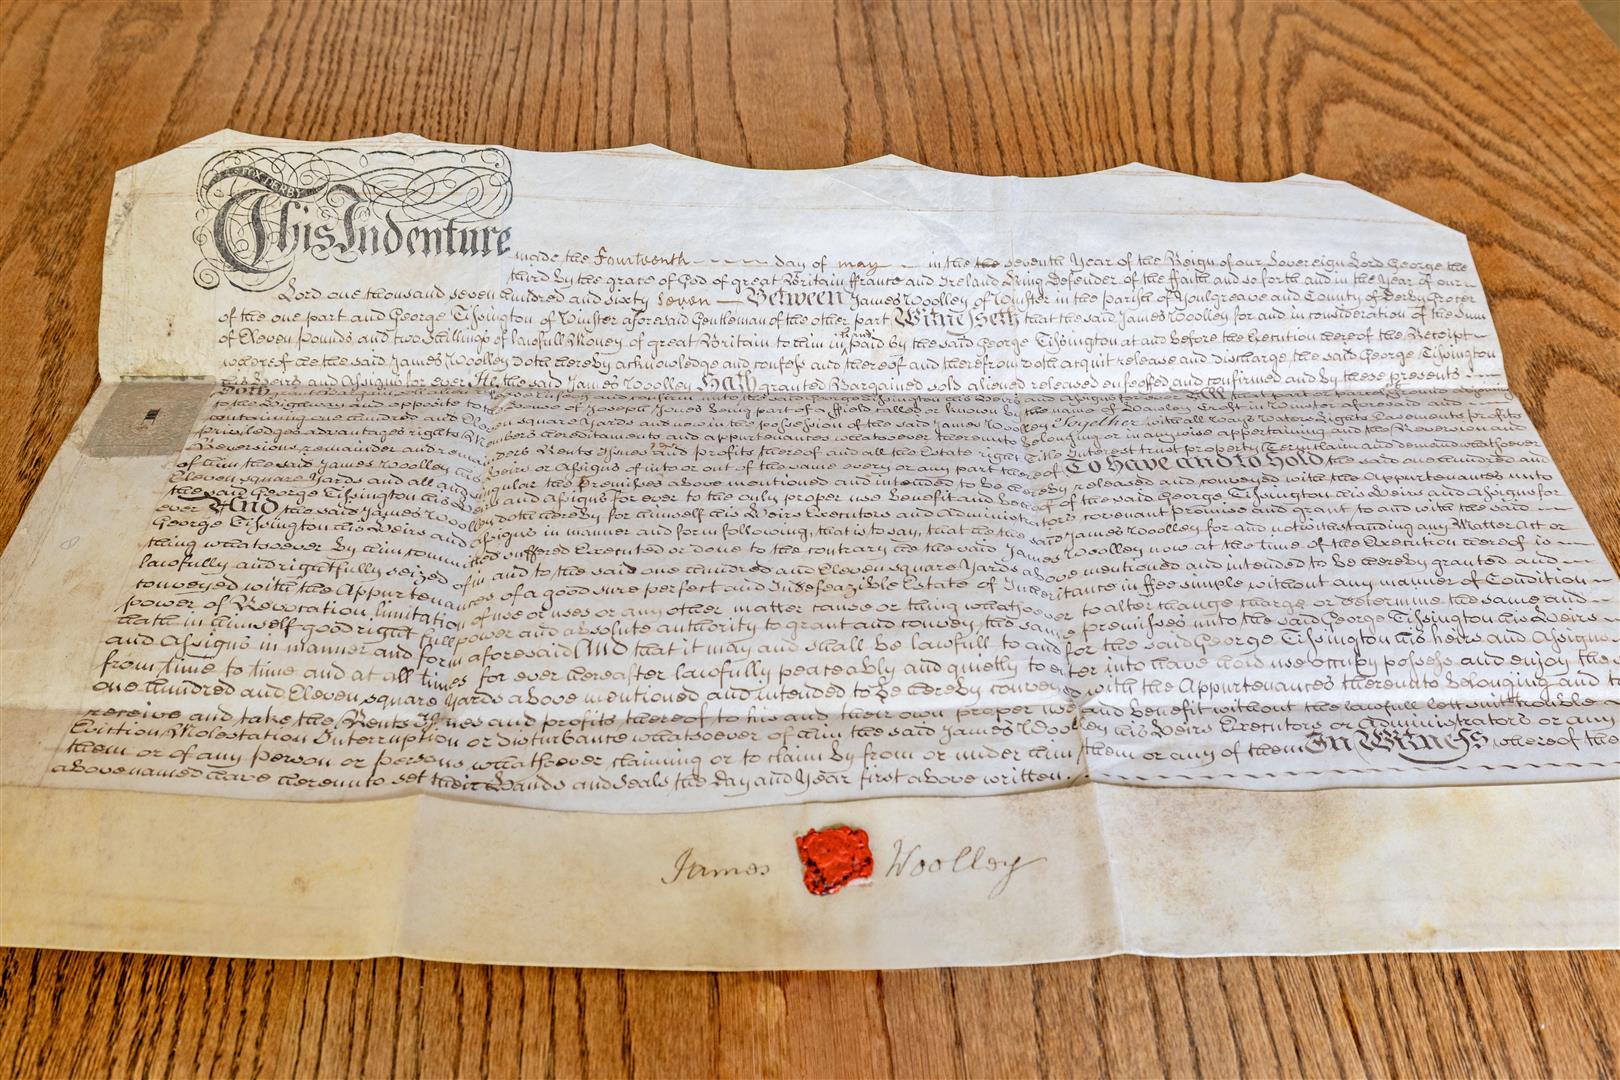 This Indenture
made the Fourteenth day of may in the the seventh Year of the Reign of our Sovereign Lord George the
third by the grace of God of great Britain ffrance and Ireland King Defender of the ffaith and so forth and in the Year of our
Lord one thousand seven hundred and sixty seven Between James Woolley of Winster in the parish of Youlgreave and County of Derby Grocer
of the one part and George Tissington of Winster aforesaid Gentleman of the other part Witnesseth that the said James Woolley for and in consideration of the sum
of Eleven Pounds and two Shillings of lawfull Money of great Britain to him in hand paid by the said George Tissington at and before the Execution hereof the Receipt
whereof he the said James Woolley doth hereby acknowledge and confess and thereof and therefrom doth acquit release and discharge the said George Tissington
his Heirs and Assigns for ever He the said James Woolley Hath granted Bargained sold aliened released enfeoffed and confirmed and by these presents
Doth grant Bargain and confirm unto the said George Tissington his Heirs and Assigns for ever All that
to the Highway and opposite to the House of Joseph Jones being part of a ffield called or known by the name of Croft in Winster aforesaid and
containing one hundred and Eleven square Yards and now in the possession of the said James Woolley Together with all Ways Water Rights Easements profits
priviledges advantages rights Members hereditaments and appurtenances whatsoever thereunto belonging or in anywise appertaining and the Reversion and
Reversions remainder and remainders Rents Issues and profits thereof and all the Estate right Title Interest trust property Term claim and demand whatsoever
of him the said James Woolley his Heirs or Assigns of into or out of the same every or any part thereof To Have and to Hold the said one hundred and
Eleven square Yards and all and singular the Premisses above mentioned and intended to be hereby released and conveyed with the Appurtenances unto
the said George Tissington his Heirs and Assigns for ever to the only proper use benefit and behoof of the said George Tissington his Heirs and Assigns for
ever And the said James Woolley doth hereby for himself his Heirs Executors and Administrators covenant promise and grant to and with the said
George Tissington his Heirs and Assigns in manner and form following, that is to say, that he the said James Woolley for and notwithstanding any Matter Act or
thing whatsoever by him committed suffered Executed or done to the contrary he the said James Woolley now at the time of the Execution hereof is
lawfully and rightfully seized of in and to the said one hundred and Eleven square Yards above mentioned and intended to be hereby granted and
conveyed with the Appurtenances of a good sure perfect and Indefeazible Estate of Inheritance in ffee simple without any manner of Condition
power of Revocation limitation of use or uses or any other matter cause or thing whatsoever to alter change charge or determine the same and
hath in himself good right full power and absolute authority to grant and convey the same premisses unto the said George Tissington his Heirs
and Assigns in manner and form aforesaid And that it may and shall be lawfull to and for the said George Tissington his heirs and Assigns
from time to time and at all times for ever hereafter lawfully peaceably and quietly to enter into have hold use occupy possess and enjoy the
one hundred and Eleven square Yards above mentioned and intended to be hereby conveyed with the Appurtenances thereunto belonging and to
receive and take the Rents Issues and profits thereof to his and their own proper use and benefit without the lawfull lett suit trouble
Eviction Molestation Interruption or disturbance whatsoever of him the said James Woolley his Heirs Executors or Administrators or any
them or of any person or persons whatsoever claiming or to claim by from or under him them or any of them In Witness whereof the
abovenamed have hereunto set their Hands and Seals the Day and Year first above written.
James Woolley